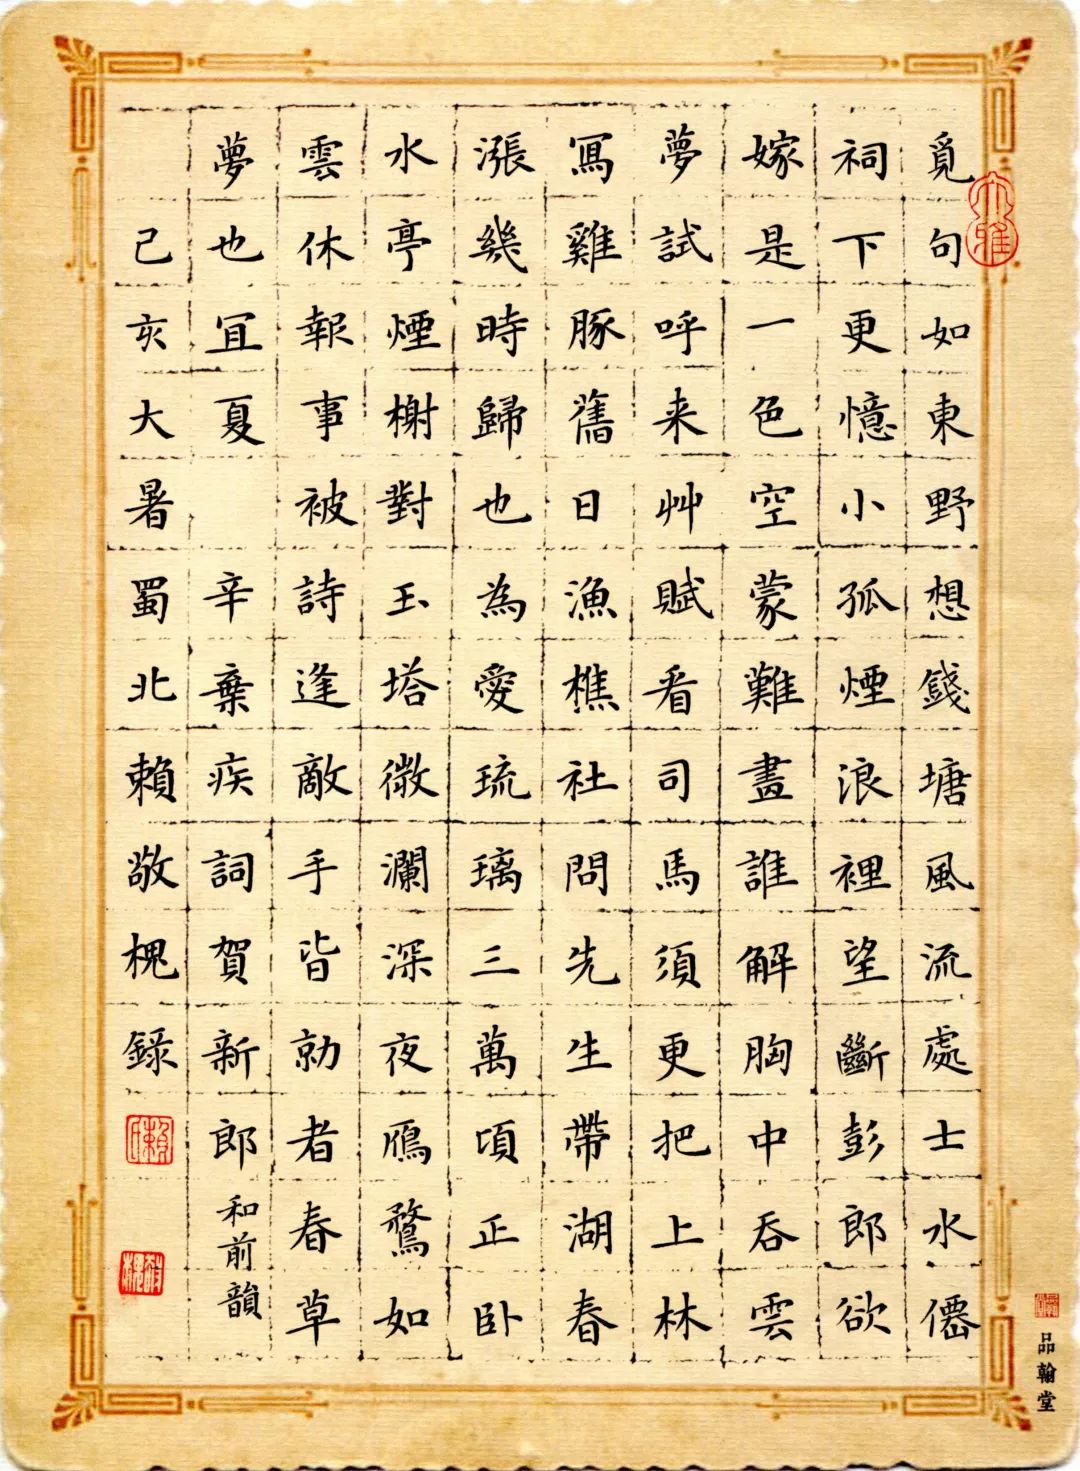 覓句如東野想錢塘風流處士水僊
祠下更憶小孤煙浪裡望斷彭郎欲
嫁是一色空蒙難畫誰解胸中吞雲
夢試呼来艸賦看司馬須更把上林
寫雞豚舊日漁樵社問先生帶湖春
漲幾時歸也為愛琉璃三萬頃正卧
水亭煙榭對玉塔微瀾深夜鴈鶩如
雲休報事被詩逢敵手皆勍者春草
夢也宜夏 辛棄疾詞賀新郎和前韻
己亥大暑蜀北賴敬槐錄
大雅
品翰堂